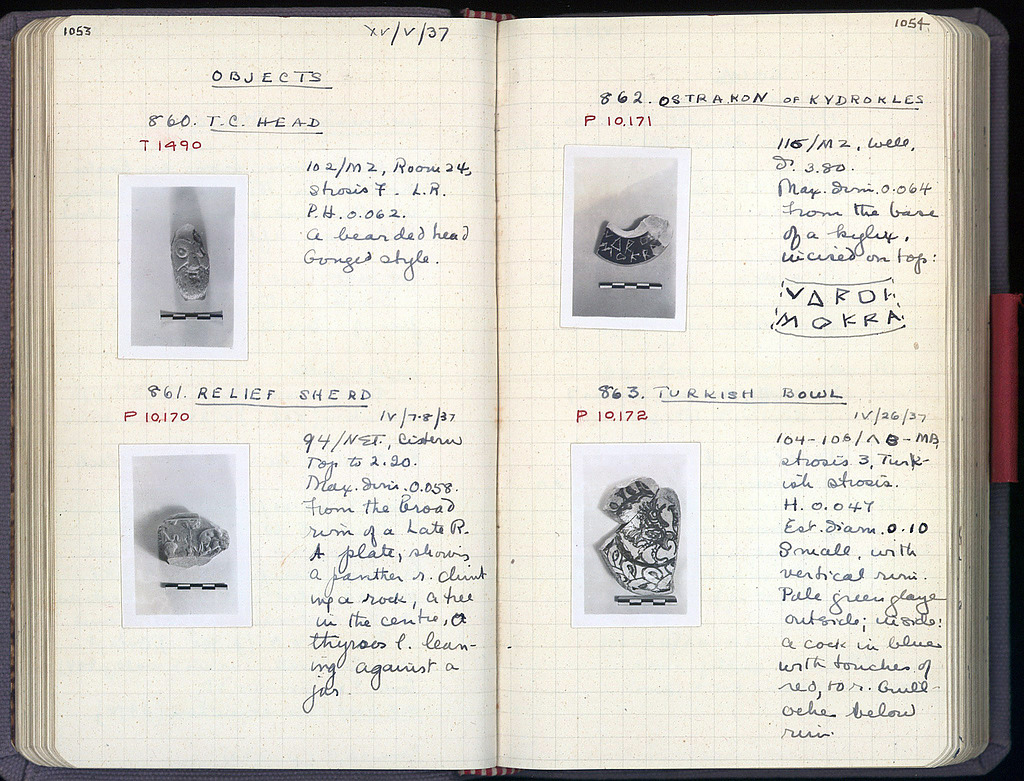 1053
XV/V/37
OBJECTS
860. T.C. HEAD
T 1490
102/MZ, Room 24,
strosis 7. L.R.
P.H. 0.062.
A bearded head
Gouged style.
861. RELIEF SHERD
P 10,170
IV/7-8/37
94/NΣT., Cistern
Top to 2.20.
Max. dim. 0.058.
From the broad
rim of a Late R.
A plate, showing
a panther r. climb
ing a rock, a tree
in the centre, a
thyrsos l. lean-
ing against a
jar.
1054
862. OSTRAKON OF KYDROKLES
P 10,171
115/MZ, well,
D. 3.80.
Max. dim. 0.064
From the base
of a kylix,
incised on top:
VΔROK
MOKRA
863. TURKISH BOWL
P 10,172
IV/26/37
strosis 3, Turk-
ish strosis.
H. 0.047
Est. diam. 0.10
Small, with
vertical rim.
Pale green glaze
outside; inside:
a cock in blue
with touches of
red, to r. Guill-
oche below
rim.